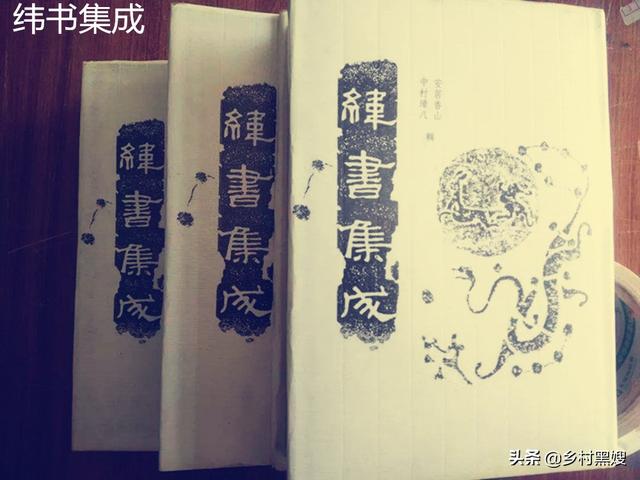 纬书集成
緯書集成
緯書集成
緯書集成
安居香山
中村璋八 輯
头条 @乡村黑嫂